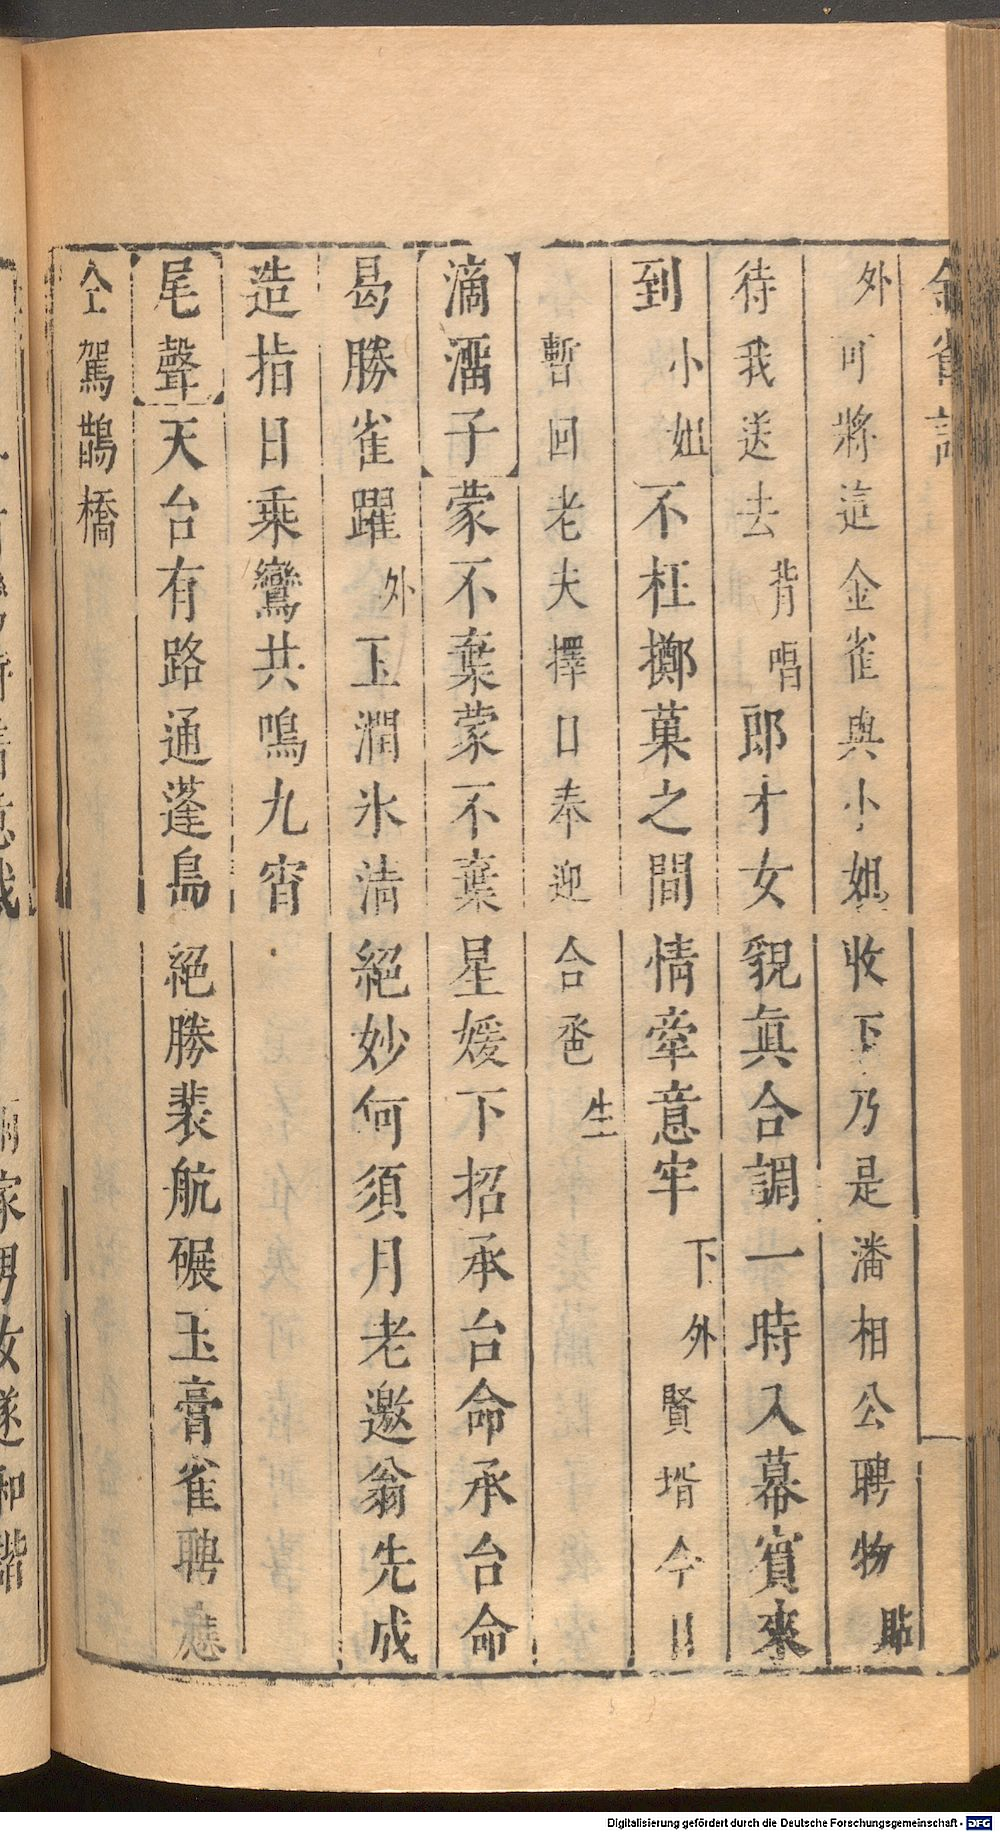 金雀記
外可將這金雀與小姐收下乃是潘相公聘物貼
待我送去背唱郎才女貌眞合調一時入幕賓來
到小姐不枉擲菓之間情牽意牢下外賢壻今日
暫回老夫擇日奉迎合巹生
滴溜子蒙不棄蒙不棄星媛下招承台命承台命
曷勝雀躍外玉潤氷清絕妙何須月老邀翁先成
造指日乗鸞共鳴九宵
尾聲天台有路通蓬島絕勝裴航碾玉膏雀聘應
仝駕鵲橋
家男女遂和諧
Digitalisierung gefördert durch die Deutsche Forschungsgemeinschaft - DFG